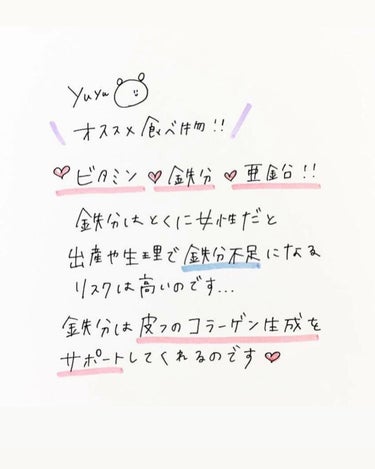 yuyu
オススメ食べ物!!
♥ビタミン ♥鉄分 ♥亜鉛!!
鉄分はとくに女性だと
出産や生理で鉄分不足になる
リスクは高いのです...
鉄分は皮フのコラーゲン生成を
サポートしてくれるのです♥